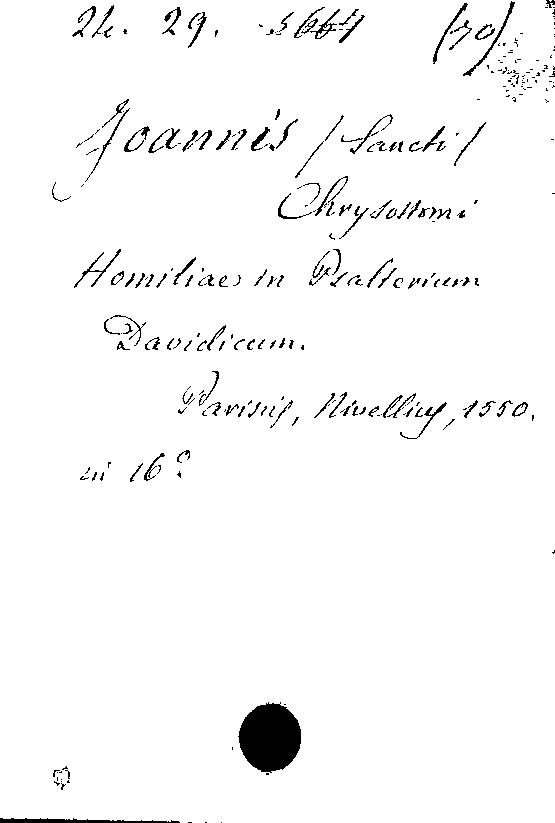 24. 29. 5667 (70)
Joannis /Sancti/
Chrysostomi
Homiliae in Psalterium
Davidicum.
Parisiis, Nivellius, 1550.
in 16º